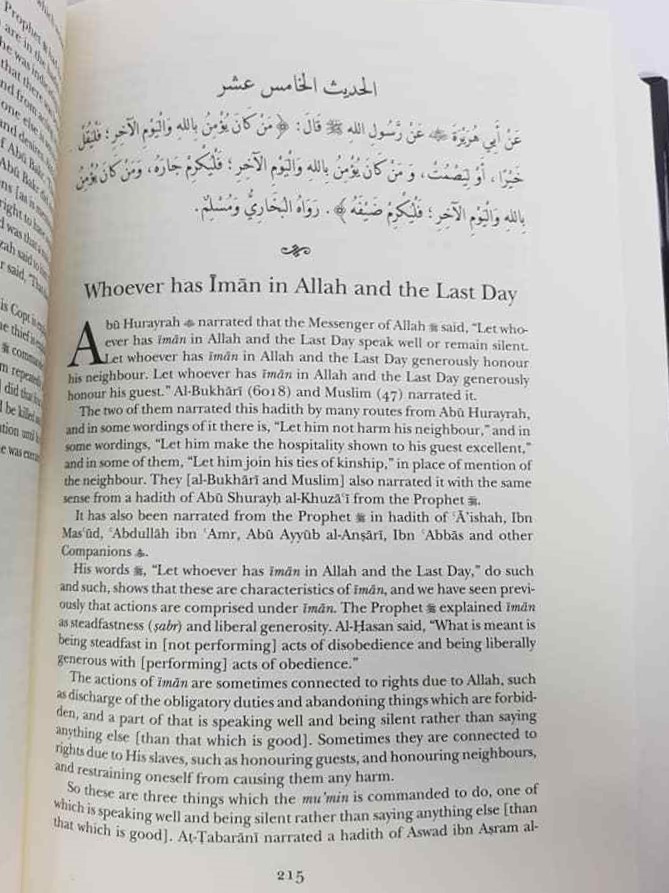 which
Prophet ﷺ had
are in the
he was
that there
and from
one else
and denies
f Abū Bakr
Abū Bakr
ns [as in
right to have
d was that
zah said to
r said, "That
is Copt is
he thief is
ﷺ commanded
m repeatedly
d did that
d be killed
tion until
e was
الحديث الخامس عشر
عَنْ أَبِي هُرَيْرَةَ ﵁ عَنْ رَسُولِ اللهِ ﷺ قَالَ: ﴿ مَنْ كَانَ يُؤْمِنُ بِاللهِ وَالْيَوْمِ الآخِرِ؛ فَلْيَقُلْ
خَيْرًا، أَوْ لِيَصْمُتْ، وَ مَنْ كَانَ يُؤْمِنُ بِاللهِ وَالْيَوْمِ الآخِرِ؛ فَلْيُكْرِمْ جَارَهُ، وَمَنْ كَانَ يُؤْمِنُ
بِاللهِ وَالْيَوْمِ الآخِرِ؛ فَلْيُكْرِمْ ضَيْفَهُ ﴾. رَوَاهُ الْبُخَارِيُّ وَمُسْلِمٌ.
Whoever has Īmān in Allah and the Last Day
Abū Hurayrah ﵁ narrated that the Messenger of Allah ﷺ said, "Let who-
ever has īmān in Allah and the Last Day speak well or remain silent.
Let whoever has īmān in Allah and the Last Day generously honour
his neighbour. Let whoever has īmān in Allah and the Last Day generously
honour his guest." Al-Bukhārī (6018) and Muslim (47) narrated it.
The two of them narrated this hadith by many routes from Abū Hurayrah,
and in some wordings of it there is, "Let him not harm his neighbour," and in
some wordings, "Let him make the hospitality shown to his guest excellent,"
and in some of them, "Let him join his ties of kinship," in place of mention of
the neighbour. They [al-Bukhārī and Muslim] also narrated it with the same
sense from a hadith of Abū Shurayḥ al-Khuzāʿī from the Prophet ﷺ.
It has also been narrated from the Prophet ﷺ in hadith of ʿĀ'ishah, Ibn
Masʿūd, ʿAbdullāh ibn ʿAmr, Abū Ayyūb al-Anṣārī, Ibn ʿAbbās and other
Companions ﵃.
His words ﷺ, "Let whoever has īmān in Allah and the Last Day," do such
and such, shows that these are characteristics of īmān, and we have seen previ-
ously that actions are comprised under īmān. The Prophet ﷺ explained īmān
as steadfastness (ṣabr) and liberal generosity. Al-Ḥasan said, "What is meant is
being steadfast in [not performing] acts of disobedience and being liberally
generous with [performing] acts of obedience."
The actions of īmān are sometimes connected to rights due to Allah, such
as discharge of the obligatory duties and abandoning things which are forbid-
den, and a part of that is speaking well and being silent rather than saying
anything else [than that which is good]. Sometimes they are connected to
rights due to His slaves, such as honouring guests, and honouring neighbours,
and restraining oneself from causing them any harm.
So these are three things which the mu'min is commanded to do, one of
which is speaking well and being silent rather than saying anything else [than
that which is good]. Aṭ-Ṭabarānī narrated a hadith of Aswad ibn Aṣram al-
215